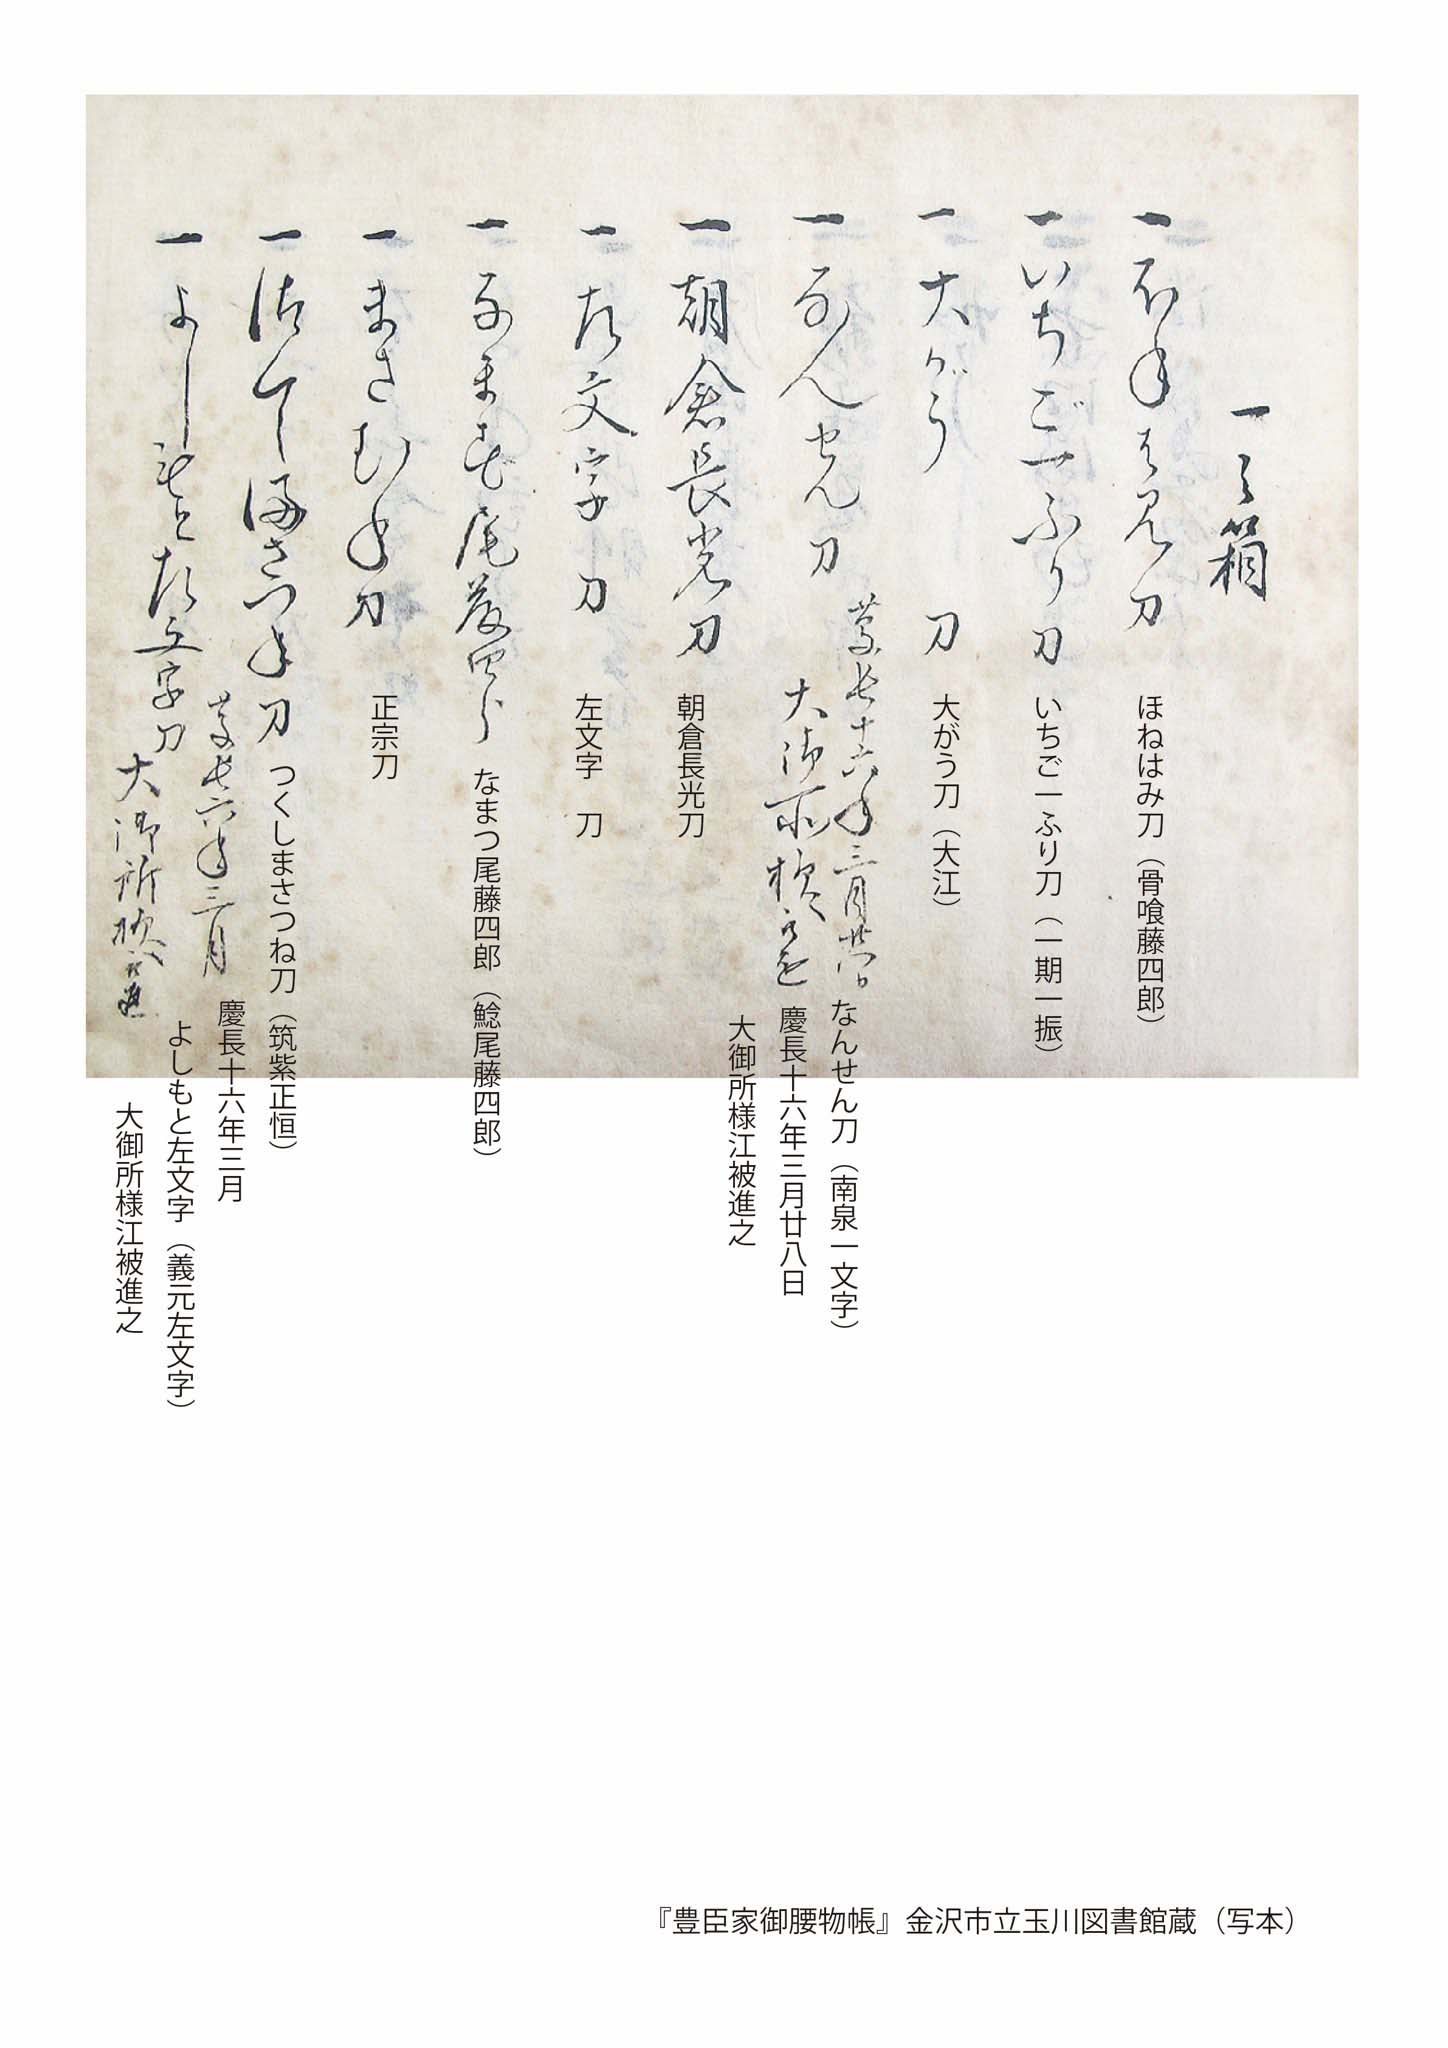 一之箱
一 ほねはみ刀
ほねはみ刀（骨喰藤四郎）
一 いちご一ふり刀
いちご一ふり刀（一期一振）
一 大がう 刀
大がう刀（大江）
一 なんせん刀
慶長十六年三月廿八日
大御所様江被進之
なんせん刀（南泉一文字）
慶長十六年三月廿八日
大御所様江被進之
一 朝倉長光刀
朝倉長光刀
一 左文字 刀
左文字 刀
一 なまつ尾藤四郎
なまつ尾藤四郎（鯰尾藤四郎）
一 まさむね刀
正宗刀
一 つくしまさつね刀
つくしまさつね刀（筑紫正恒）
慶長十六年三月
慶長十六年三月
一 よしもと左文字刀
よしもと左文字（義元左文字）
大御所様江被進之
大御所様江被進之
『豊臣家御腰物帳』金沢市立玉川図書館蔵（写本）